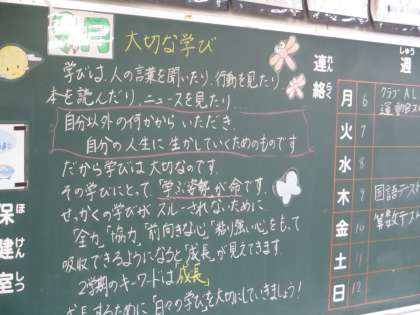 大切な学び
学びは、人の言葉を聞いたり、行動を見たり
本を読んだり、ニュースを見たり…
自分以外の何かからいただき、
自分の人生に生かしていくためのものです
だから学びは大切なのです。
その学びにとって「学ぶ姿勢が命」です。
せっかくの学びがスルーされないために
「全力」「協力」「前向きな心」「粘り強い心」をもって
吸収できるようになると「成長」が見えてきます。
2学期のキーワードは「成長」
成長するために「日々の学び」を大切にしていきましょう!
連絡
れん
らく
週
しゅう
月 6 クラブ AL
火 7
水 8
木 9 国語テス
金 10 算数テ
土 11
日 12
保健室
ほ
けん
しつ